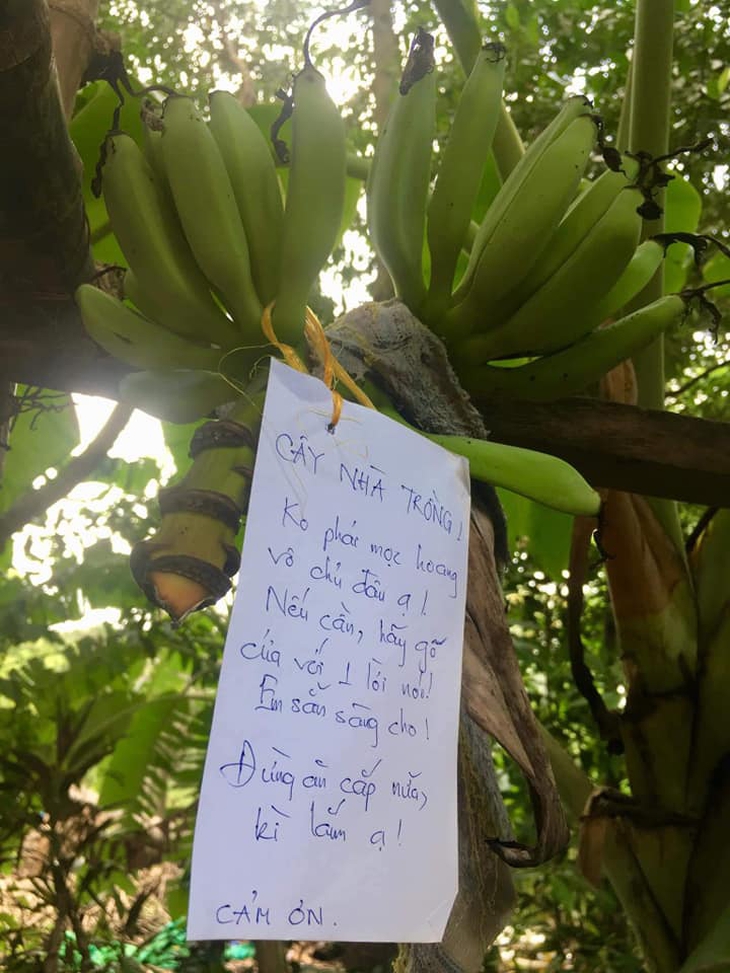 CÂY NHÀ TRỒNG!
Ko phải mọc hoang
vô chủ đâu ạ!
Nếu cần, hãy gõ
cửa với 1 lời nói!
Em sẵn sàng cho!
Đừng ăn cắp nữa,
kì lắm ạ!
CẢM ƠN.